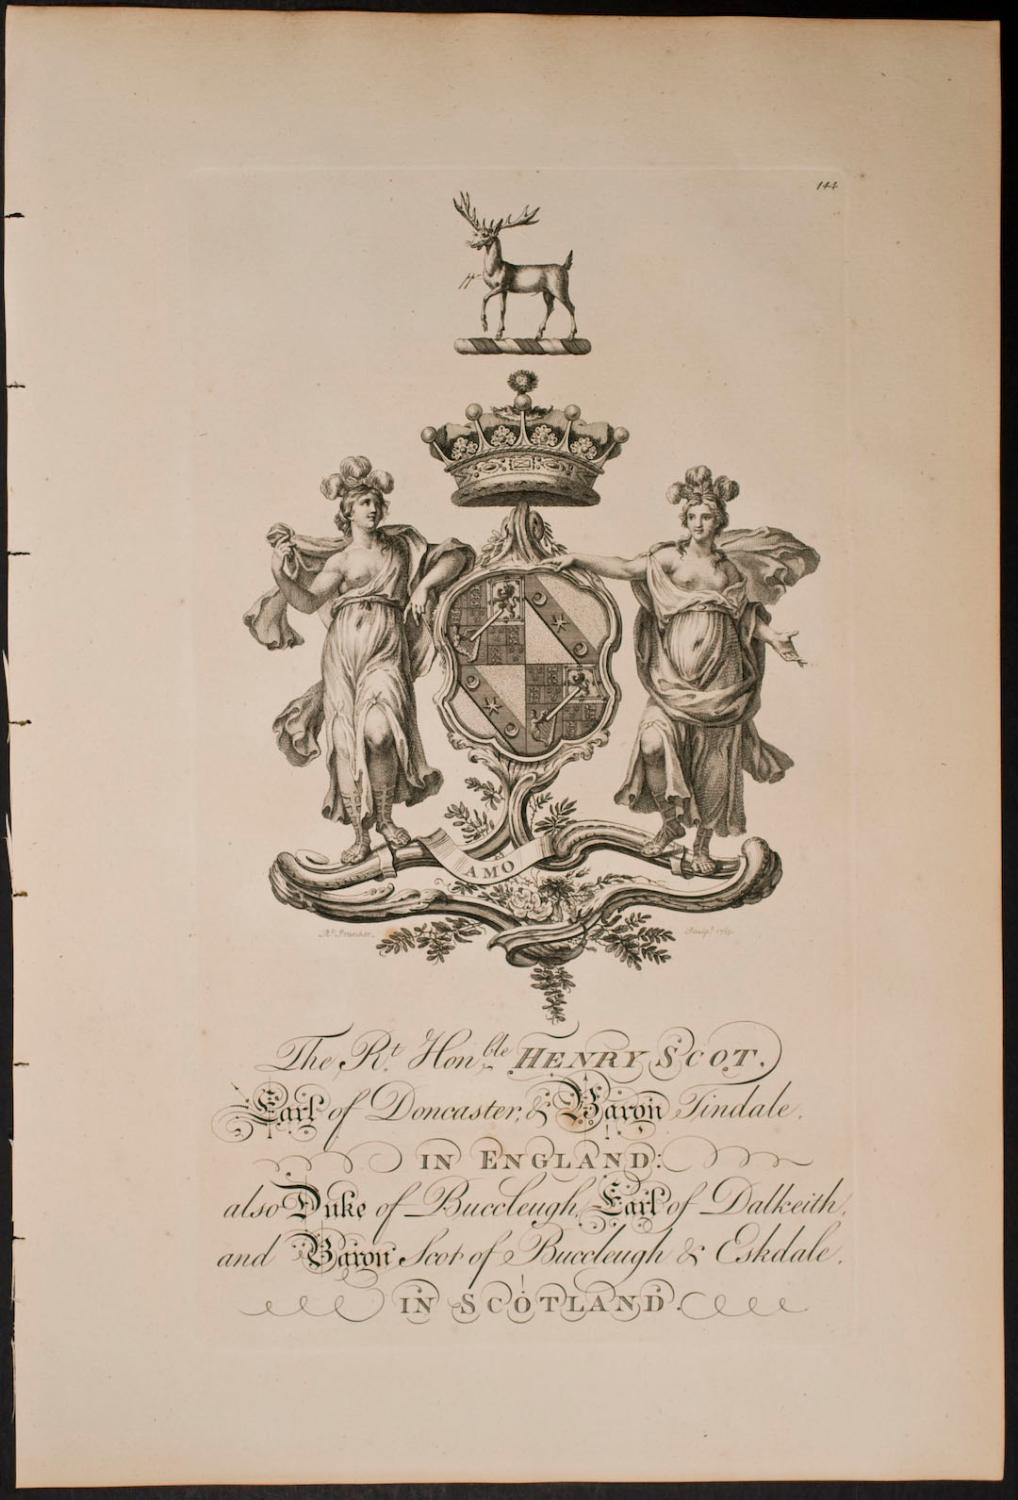 144
AMO
The Rt. Honble. HENRY SCOT.
Earl of Doncaster, & Baron Tindale.
IN ENGLAND:
also Duke of Buccleugh, Earl of Dalkeith,
and Baron Scot of Buccleugh & Eskdale.
IN SCOTLAND.